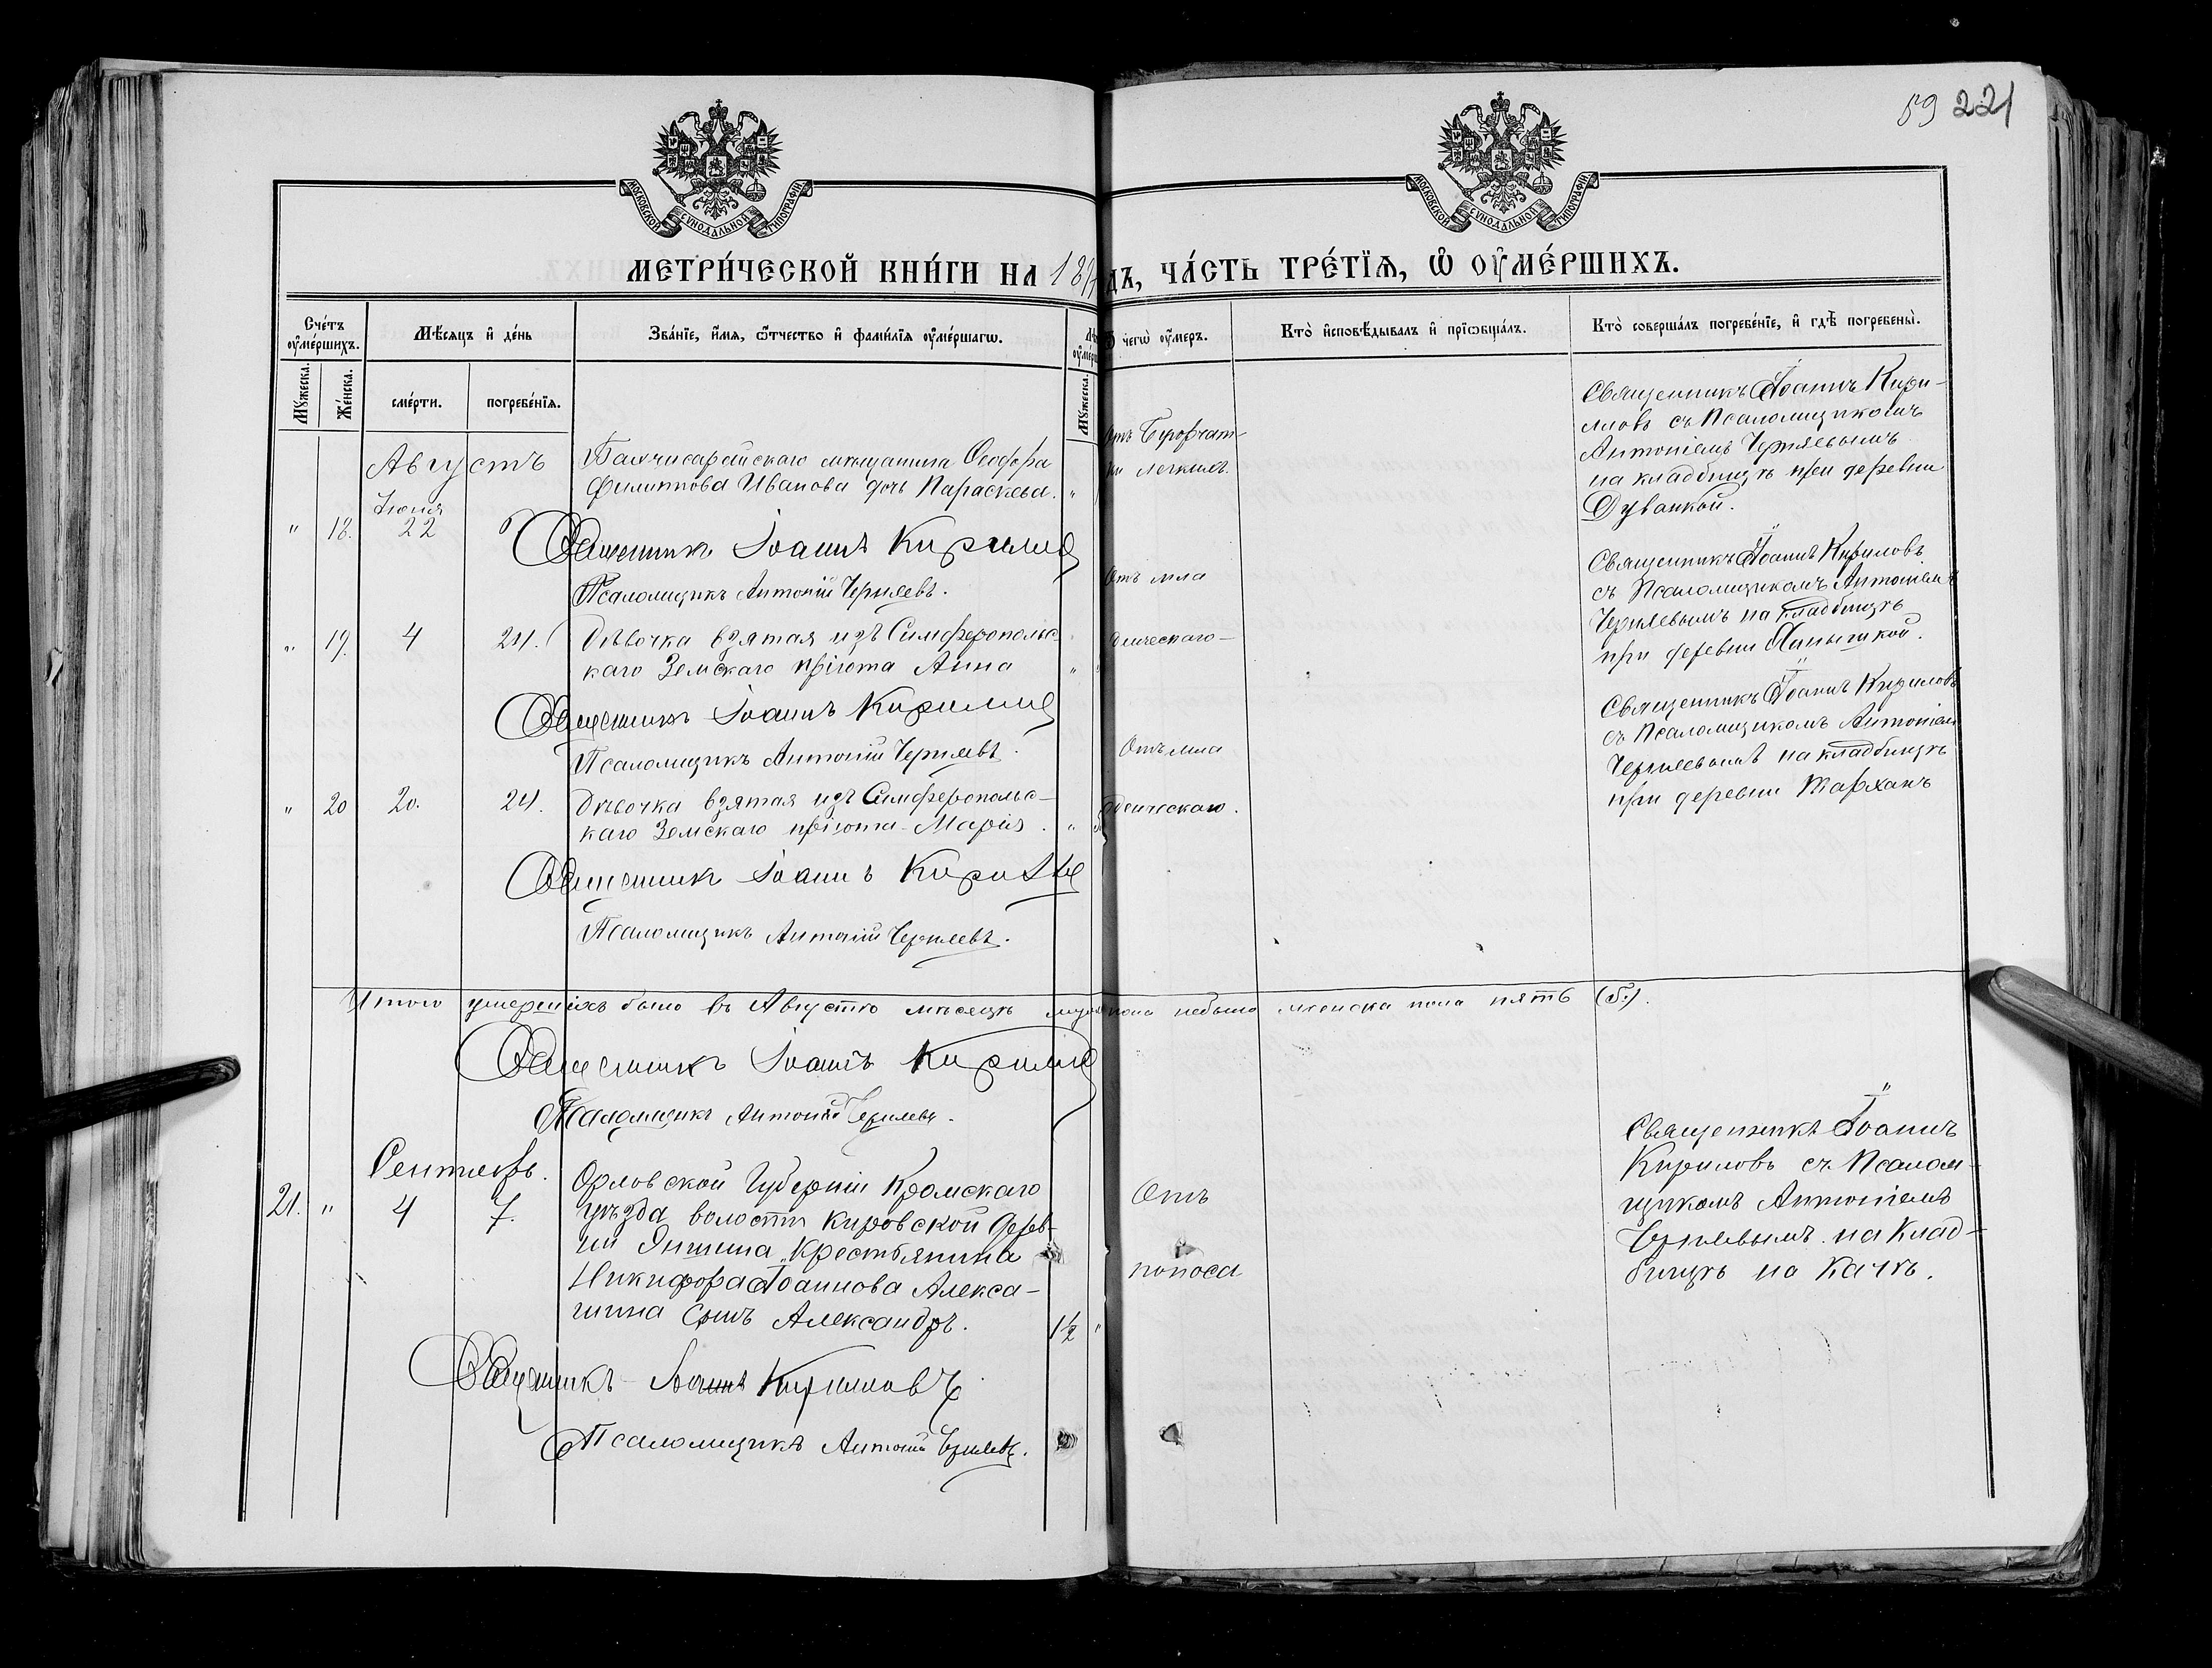 59 221
МОСКОВСКОЙ СѴНОДАЛЬНОЙ ТИПОГРАФІИ
МОСКОВСКОЙ СѴНОДАЛЬНОЙ ТИПОГРАФІИ
МЕТРИ́ЧЕСКОЙ КНИ́ГИ НА 189
ДЪ, ЧА́СТЬ ТРЕ́ТЇѦ, Ѽ ОУ҆МЕ́РШИХЪ.
Сче́тъ оу҆ме́ршихъ.
Мꙋ́жеска.
Же́нска.
Мѣ́сяцъ и҆ де́нь
сме́рти.
погребе́нїѧ.
Зва́нїе, и҆́мѧ, ѻ҆́тчество и҆ фами́лїѧ оу҆ме́ршагѡ.
Мꙋ́жеска.
чегѡ̀ оу҆́меръ.
Кто̀ и҆сповѣ́дывалъ и҆ прїѡбща́лъ.
Кто̀ соверша́лъ погребе́нїе, и҆ гдѣ̀ погребены̀.
Августъ
Іюня
" 18. 22
Бахчисарайскаго мѣщанина Ѳеодора
Филиппова Иванова дочь Параскева. "
Священникъ Іоаннъ Кирилов
Псаломщикъ Антоній Черняевъ.
Отъ
легкихъ.
Священникъ Іоаннъ Кири-
ловъ съ Псаломщикомъ
Антоніемъ Черняевымъ
на кладбищѣ при деревни
Дуванкой.
" 19. 4 24.
Дѣвочка взятая изъ Симферопольс-
каго Земскаго пріюта Анна "
Священникъ Іоаннъ Кирилов
Псаломщикъ Антоній Черняевъ.
Отъ мла
денческаго-
Священникъ Іоаннъ Кириловъ
съ Псаломщикомъ Антоніемъ
Черняевымъ на кладбищѣ
при деревни
" 20 20. 24.
Дѣвочка взятая изъ Симферопольс-
каго Земскаго пріюта - Марія. "
Священник Іоаннъ Кирилов
Псаломщикъ Антоній Черняевъ.
Отъ мла
денческаго.
Священникъ Іоаннъ Кириловъ
съ Псаломщикомъ Антоніем
Черняевымъ на кладбищѣ
при деревни Тарханъ
Итого умершихъ было въ Августѣ мѣсяцѣ муж пола небыло женска пола пять (5.).
Священникъ Іоаннъ Кирилов
Псаломщикъ Антоній Черняевъ.
Сентябрь.
21. " 4 7.
Орловской Губерніи Кромскаго
уѣзда волости Кировской дерев-
ни Яншина Крестьянина
Никифора Іоаннова Алекса-
шина сынъ Александръ. 1½ "
Священникъ Іоаннъ Кириловъ
Псаломщикъ Антоній Черняевъ.
Отъ
поноса
Священникъ Іоаннъ
Кириловъ съ Псалом-
щикомъ Антоніемъ
Черняевымъ на Клад-
бищѣ на Качѣ.